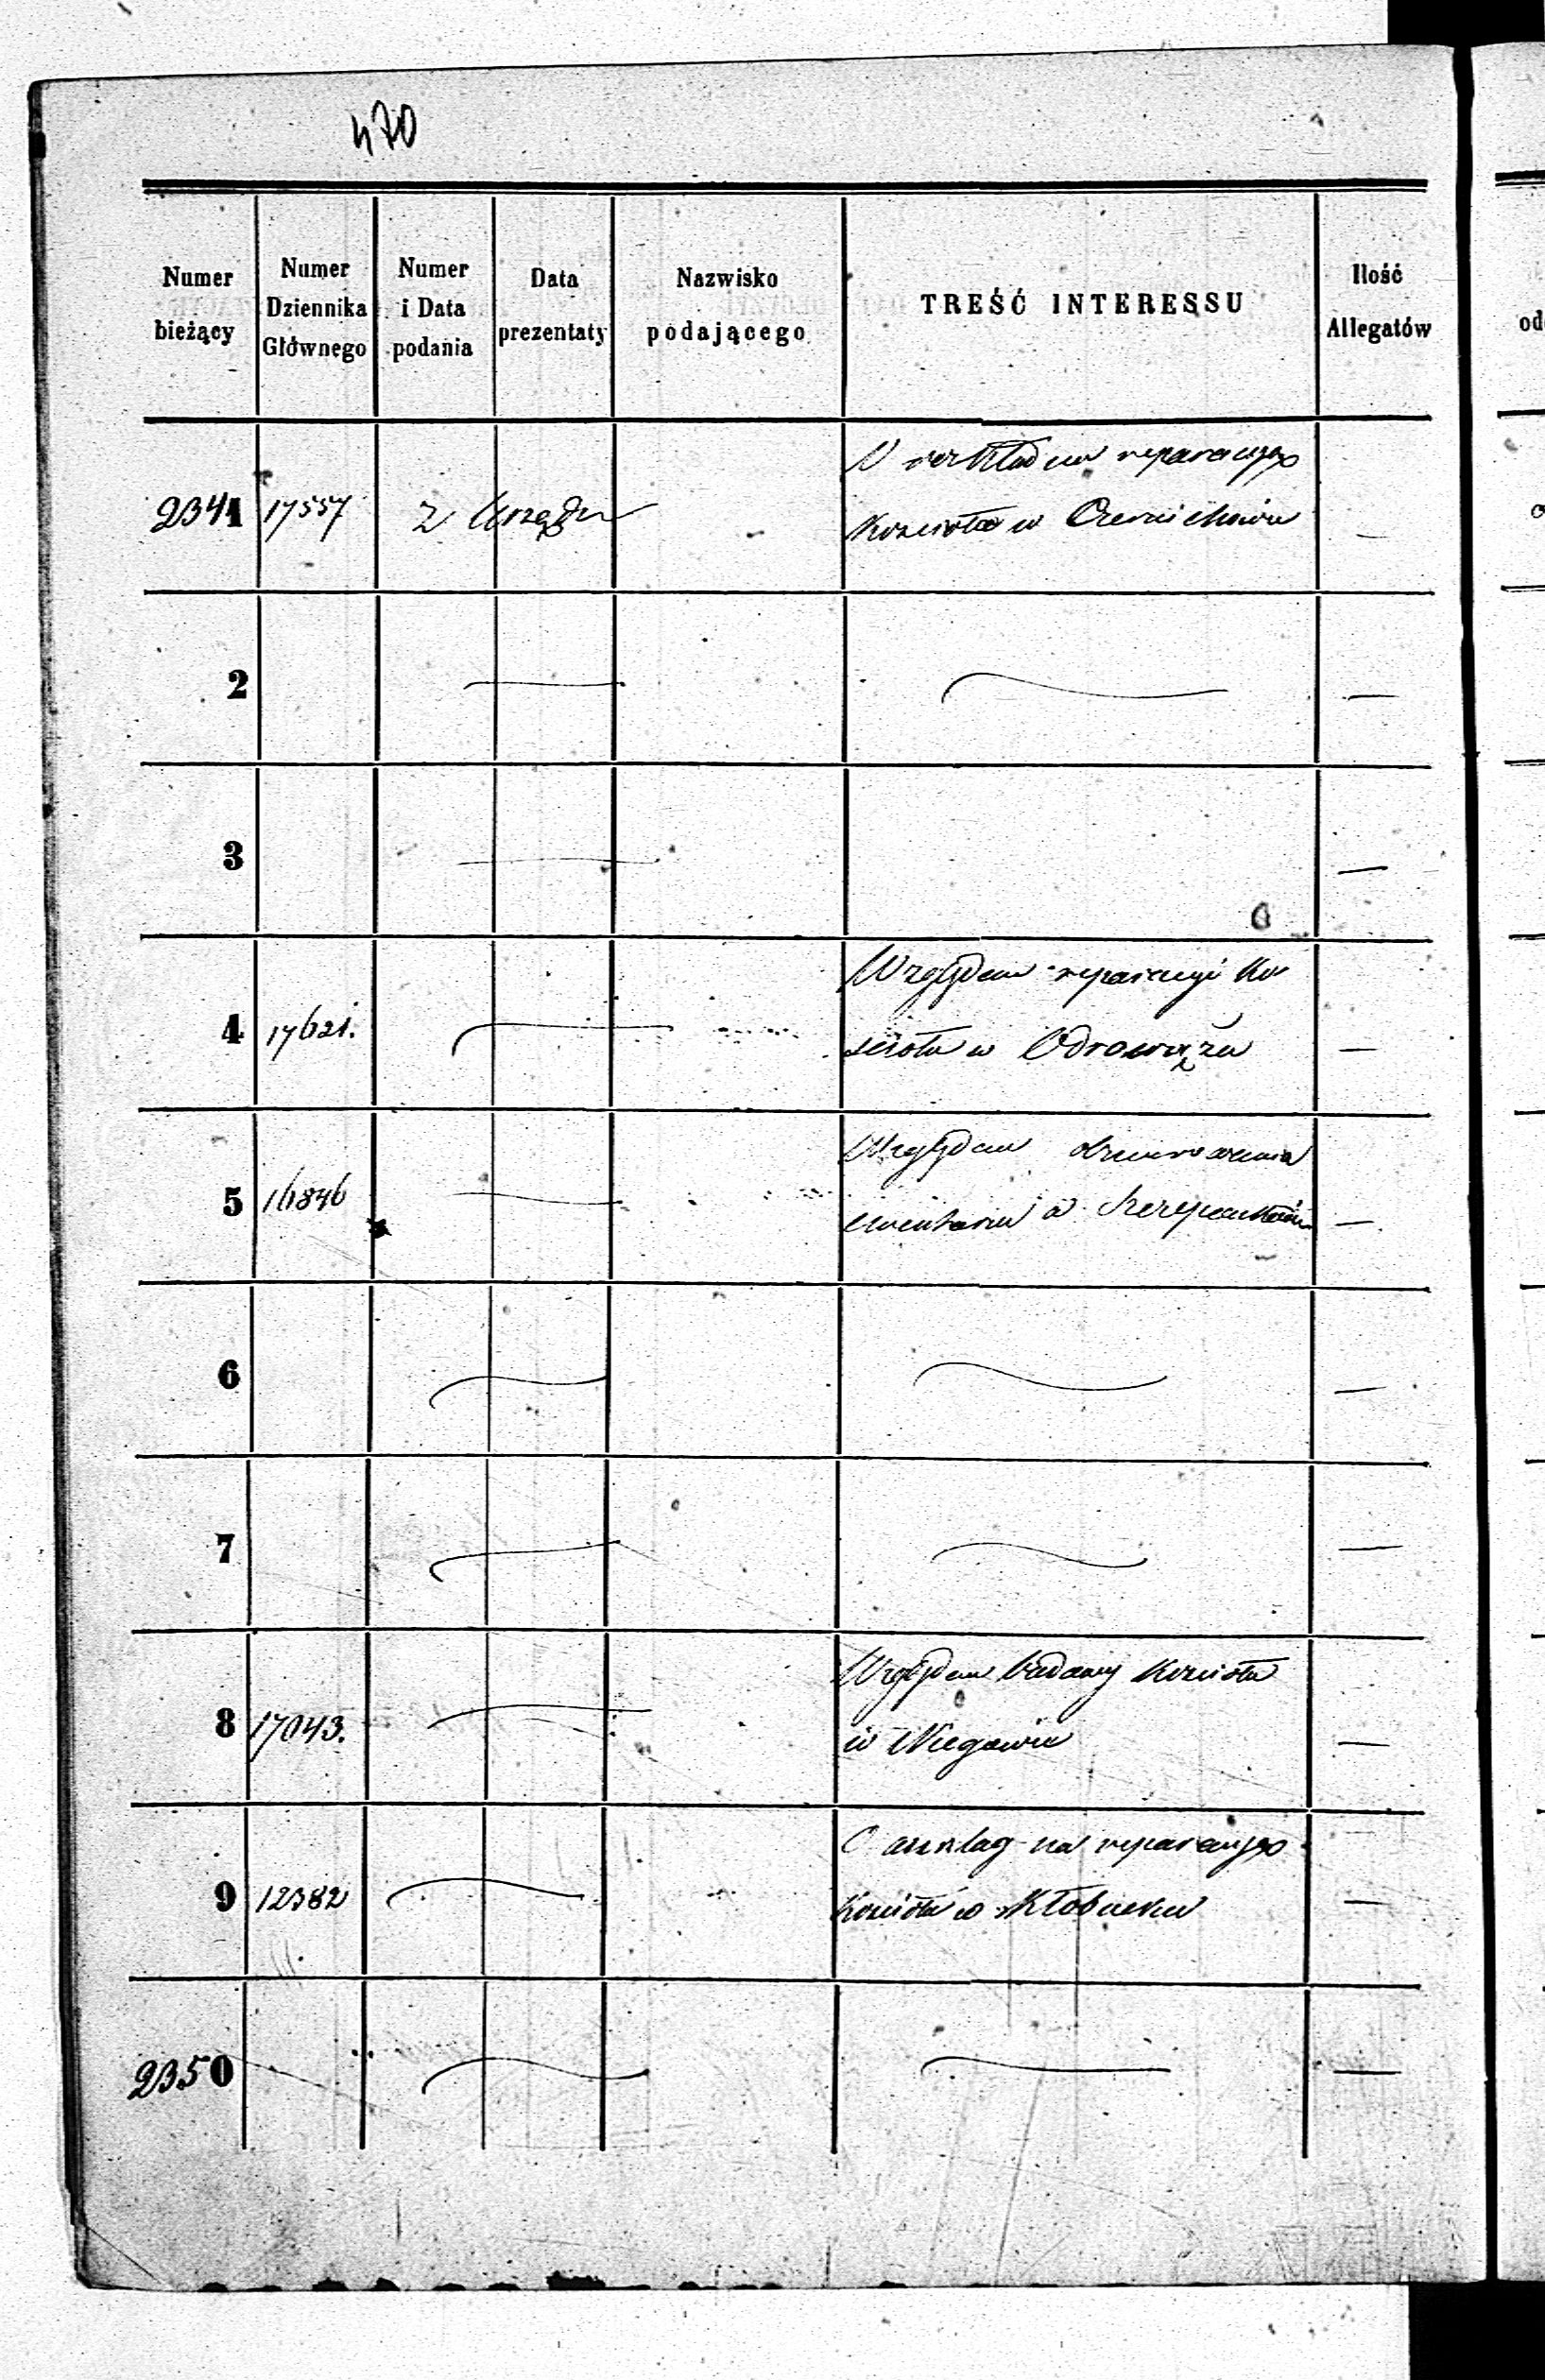 470
Numer bieżący
Numer Dziennika Głównego
Numer i Data podania
Data prezentaty
Nazwisko podającego
TREŚĆ INTERESSU
Ilość Allegatów
2341 17557 z Urzędu — O rozkład na reparacyą
Kościoła w Czernichowie —
2 — — —
3 — —
4 17621. — Względem reparacyi Ko
ścioła w Odrowążu —
5 16846 — Względem
cmentarza w —
6 — — —
7 — — —
8 17043. — Względem budowy Kościoła
w Niegowie —
9 12382 — O anszlag na reparacyą
Kościoła w Kłobucku —
2350 — — —